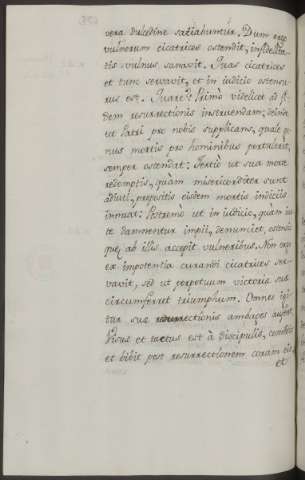 vera dulcedine satiabuntur. Dum ergo
vulnerum cicatrices ostendit, infidelita-
tis vulnus sanavit. Quas cicatrices
et tum servavit, et in iudicio ostensu
rus est. Quare? Primo videlicet ad fi-
dem resurrectionis instruendam: deinde
ut Patri pro nobis supplicans, quale ge-
nus mortis pro hominibus pertulerit,
semper ostendat: Tertio ut sua morte
redemptis, quàm misericorditer sunt
adiuti, propositis eisdem mortis indiciis
innuat: Postremo ut in iudicio, quàm ius-
te damnentur impii, denunciet, ostensis
quæ ab illis accepit vulneribus. Non ergo
ex impotentia curandi cicatrices ser-
vavit, sed ut perpetuum victoriæ suæ
circumferret triumphum. Omnes igi-
tur suæ resurrectionis ambages
Visus et tactus est à Discipulis, comedit
et bibit post resurrectionem coram eis
et